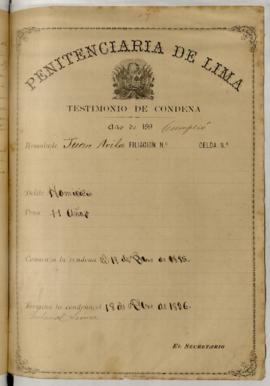 PENITENCIARIA DE LIMA
TESTIMONIO DE CONDENA
Año de 189 Cumplió
Rematado Juan Avila FILIACIÓN N.º CELDA N.º
Delito Homicidio
Pena 11 Años
Comienza la condena el 18 de de 1885.
Termina la condena el 18 de de 1896.
EL SECRETARIO